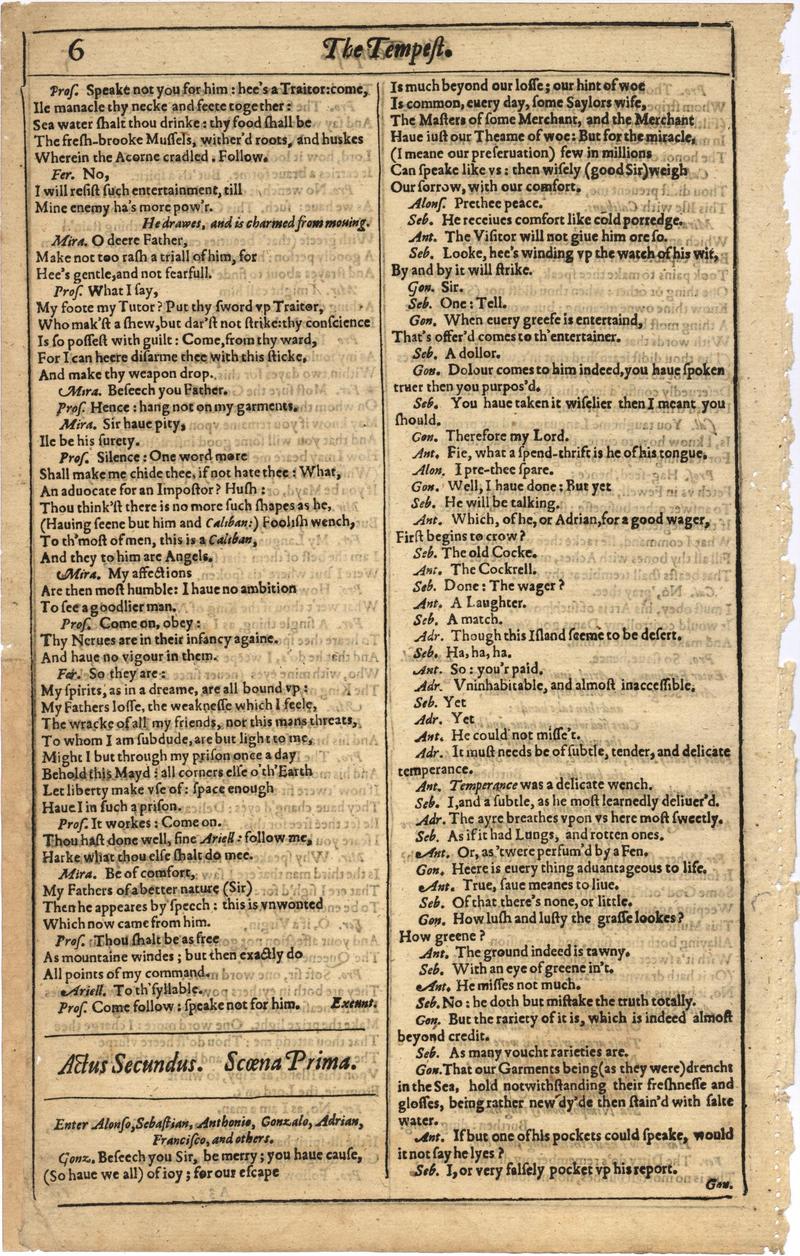 6
The Tempest.
Pros. Speake not you for him: hee's a Traitor: come,
Ile manacle thy necke and feete together:
Sea water shalt thou drinke: thy food shall be
The fresh-brooke Mussels, wither'd roots, and huskes
Wherein the Acorne cradled. Follow.
Fer. No,
I will resist such entertainment, till
Mine enemy ha's more pow'r.
He drawes, and is charmed from mouing.
Mira. O deere Father,
Make not too rash a triall of him, for
Hee's gentle, and not fearfull.
Pros. What I say,
My foote my Tutor? Put thy sword vp Traitor,
Who mak'st a shew, but dar'st not strike: thy conscience
Is so possest with guilt: Come, from thy ward,
For I can heere disarme thee with this sticke,
And make thy weapon drop.
Mira. Beseech you Father.
Pros. Hence: hang not on my garments.
Mira. Sir haue pity,
Ile be his surety.
Pros. Silence: One word more
Shall make me chide thee, if not hate thee: What,
An aduocate for an Impostor? Hush:
Thou think'st there is no more such shapes as he,
(Hauing seene but him and Caliban:) Foolish wench,
To th'most of men, this is a Caliban,
And they to him are Angels.
Mira. My affections
Are then most humble: I haue no ambition
To see a goodlier man.
Pros. Come on, obey:
Thy Nerues are in their infancy againe.
And haue no vigour in them.
Fer. So they are:
My spirits, as in a dreame, are all bound vp:
My Fathers losse, the weaknesse which I feele,
The wracke of all my friends, nor this mans threats,
To whom I am subdude, are but light to me,
Might I but through my prison once a day
Behold this Mayd: all corners else o'th'Earth
Let liberty make vse of: space enough
Haue I in such a prison.
Pros. It workes: Come on.
Thou hast done well, fine Ariell: follow me,
Harke what thou else shalt do mee.
Mira. Be of comfort,
My Fathers of a better nature (Sir)
Then he appeares by speech: this is vnwonted
Which now came from him.
Pros. Thou shalt be as free
As mountaine windes; but then exactly do
All points of my command.
Ariell. To th'syllable.
Pros. Come follow: speake not for him. Exeunt.
Actus Secundus. Scœna Prima.
Enter Alonso, Sebastian, Anthonio, Gonzalo, Adrian,
Francisco, and others.
Gonz. Beseech you Sir, be merry; you haue cause,
(So haue we all) of ioy; for our escape
Is much beyond our losse; our hint of woe
Is common, euery day, some Saylors wife,
The Masters of some Merchant, and the Merchant
Haue iust our Theame of woe: But for the miracle,
(I meane our preseruation) few in millions
Can speake like vs: then wisely (good Sir) weigh
Our sorrow, with our comfort.
Alons. Prethee peace.
Seb. He receiues comfort like cold porredge.
Ant. The Visitor will not giue him ore so.
Seb. Looke, hee's winding vp the watch of his wit,
By and by it will strike.
Gon. Sir.
Seb. One: Tell.
Gon. When euery greefe is entertaind,
That's offer'd comes to th'entertainer.
Seb. A dollor.
Gon. Dolour comes to him indeed, you haue spoken
truer then you purpos'd.
Seb. You haue taken it wiselier then I meant you
should.
Gon. Therefore my Lord.
Ant. Fie, what a spend-thrift is he of his tongue.
Alon. I pre-thee spare.
Gon. Well, I haue done: But yet
Seb. He will be talking.
Ant. Which, of he, or Adrian, for a good wager,
First begins to crow?
Seb. The old Cocke.
Ant. The Cockrell.
Seb. Done: The wager?
Ant. A Laughter.
Seb. A match.
Adr. Though this Island seeme to be desert.
Seb. Ha, ha, ha.
Ant. So: you'r paid.
Adr. Vninhabitable, and almost inaccessible.
Seb. Yet
Adr. Yet
Ant. He could not misse't.
Adr. It must needs be of subtle, tender, and delicate
temperance.
Ant. Temperance was a delicate wench.
Seb. I, and a subtle, as he most learnedly deliuer'd.
Adr. The ayre breathes vpon vs here most sweetly.
Seb. As if it had Lungs, and rotten ones.
Ant. Or, as 'twere perfum'd by a Fen.
Gon. Heere is euery thing aduantageous to life.
Ant. True, saue meanes to liue.
Seb. Of that there's none, or little.
Gon. How lush and lusty the grasse lookes?
How greene?
Ant. The ground indeed is tawny.
Seb. With an eye of greene in't.
Ant. He misses not much.
Seb. No: he doth but mistake the truth totally.
Gon. But the rariety of it is, which is indeed almost
beyond credit.
Seb. As many voucht rarieties are.
Gon. That our Garments being (as they were) drencht
in the Sea, hold notwithstanding their freshnesse and
glosses, being rather new dy'de then stain'd with salte
water.
Ant. If but one of his pockets could speake, would
it not say he lyes?
Seb. I, or very falsely pocket vp his report.
Gon.